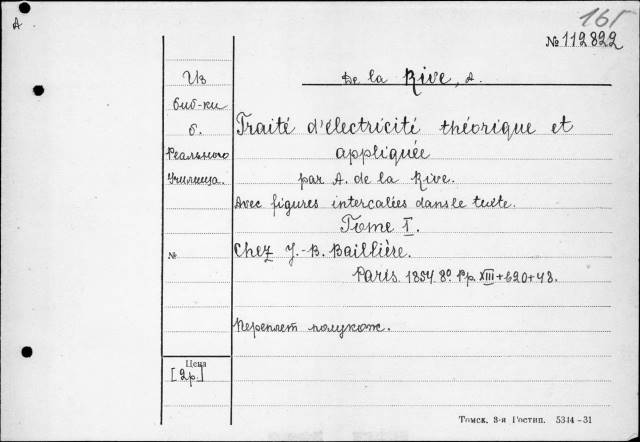 А
165
№ 112822
De la Rive, A.
Из
биб-ки
б.
Реального
Училища.
Traité d'électricité théorique et
appliquée
par A. de la Rive.
Avec figures intercalées dans le texte.
Tome I.
№
Chez J.-B. Baillière.
Paris. 1854. 8°. pp. XIII+620+48.
Переплет полукож.
Цена
[2р.]
Томск, 3-я Гостип. 5344-31